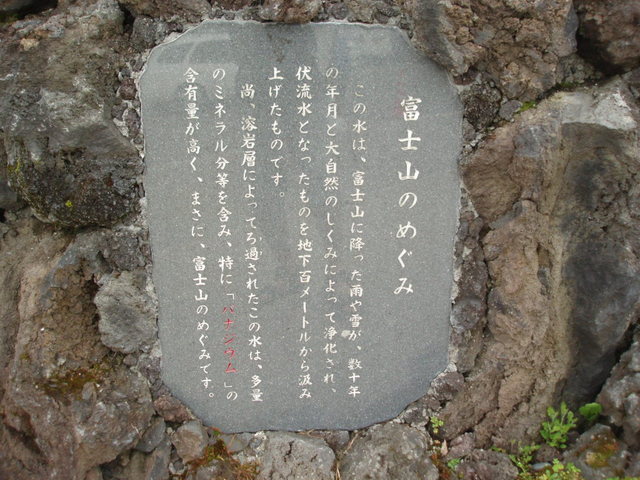 富士山のめぐみ
この水は、富士山に降った雨や雪が、数十年
の年月と大自然のしくみによって浄化され、
伏流水となったものを地下百メートルから汲み
上げたものです。
尚、溶岩層によってろ過されたこの水は、多量
のミネラル分等を含み、特に「バナジウム」の
含有量が高く、まさに、富士山のめぐみです。